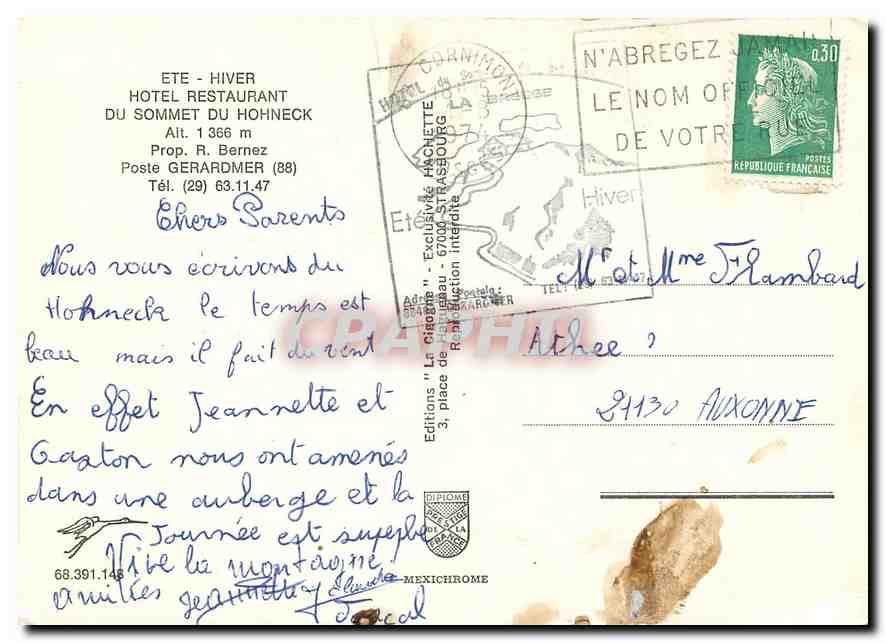 ETE - HIVER
HOTEL RESTAURANT
DU SOMMET DU HOHNECK
Alt. 1 366 m
Prop. R. Bernez
Poste GERARDMER (88)
Tél. (29) 63.11.47
Chers Parents
Nous vous écrivons du
Hohneck le temps est
beau mais il fait du vent
En effet Jeannette et
Gaston nous ont amenés
dans une auberge et la
Journée est superbe
Vive la montagne
amitiés Jeannette
Pascal
68.391.148
MEXICHROME
DIPLOME
PRESTIGE
DE LA
FRANCE
Editions "La Cigogne" - Exclusivité HACHETTE
3, place de Haguenau - 67000 STRASBOURG
Reproduction interdite
CORNIMONT
HOTEL du
LA BRESSE
Eté
Hiver
GERARDMER
N'ABREGEZ JAMAIS
LE NOM OFFICIEL
DE VOTRE RUE
0,30
POSTES
REPUBLIQUE FRANÇAISE
Mr et Mme Flambard
Athee
21130 AUXONNE
CPAPHIL